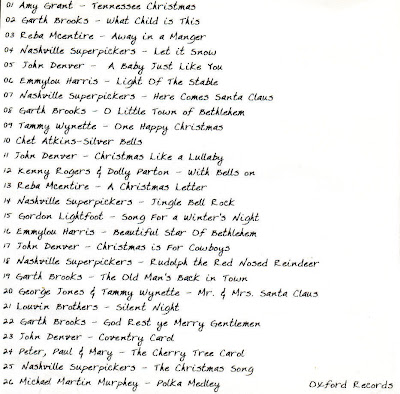 01 Amy Grant - Tennessee Christmas
02 Garth Brooks - What Child is This
03 Reba Mcentire - Away in a Manger
04 Nashville Superpickers - Let it Snow
05 John Denver - A Baby Just Like You
06 Emmylou Harris - Light Of The Stable
07 Nashville Superpickers - Here Comes Santa Claus
08 Garth Brooks - O Little Town of Bethlehem
09 Tammy Wynette - One Happy Christmas
10 Chet Atkins-Silver Bells
11 John Denver - Christmas Like a Lullaby
12 Kenny Rogers & Dolly Parton - With Bells on
13 Reba Mcentire - A Christmas Letter
14 Nashville Superpickers - Jingle Bell Rock
15 Gordon Lightfoot - Song For a Winter's Night
16 Emmylou Harris - Beautiful Star Of Bethlehem
17 John Denver - Christmas is For Cowboys
18 Nashville Superpickers - Rudolph the Red Nosed Reindeer
19 Garth Brooks - The Old Man's Back in Town
20 George Jones & Tammy Wynette - Mr. & Mrs. Santa Claus
21 Louvin Brothers - Silent Night
22 Garth Brooks - God Rest ye Merry Gentlemen
23 John Denver - Coventry Carol
24 Peter, Paul & Mary - The Cherry Tree Carol
25 Nashville Superpickers - The Christmas Song
26 Michael Martin Murphey - Polka Medley Oxford Records